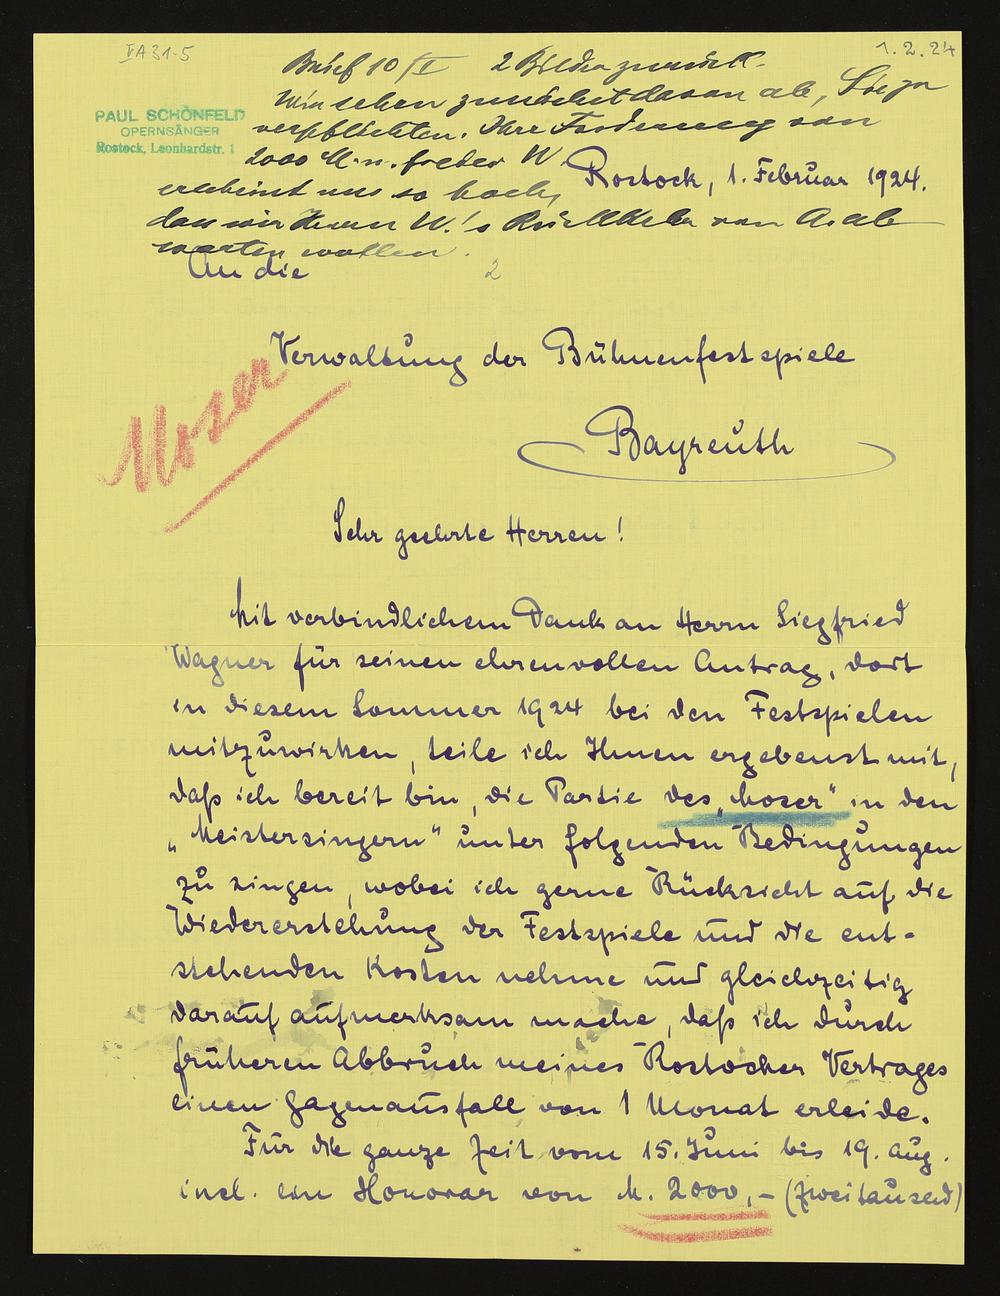 VA31-5
1.2.24
Brief 10/II 2 Bilder zurück.
Wir sehen zunächst davon ab, Sie zu
verpflichten. Ihre Forderung von
2000 M. n. freier W.
erscheint uns so hoch,
dass wir Herrn W.'s Rückkehr von A. ab
warten wollen.
PAUL SCHÖNFELD
OPERNSÄNGER
Rostock, Leonhardstr. 1
Rostock, 1. Februar 1924.
An die
2
Verwaltung der Bühnenfestspiele
Bayreuth
Moser
Sehr geehrte Herren!
Mit verbindlichem Dank an Herrn Siegfried
Wagner für seinen ehrenvollen Antrag, dort
in diesem Sommer 1924 bei den Festspielen
mitzuwirken, teile ich Ihnen ergebenst mit,
daß ich bereit bin, die Partie des „Moser“ in den
„Meistersingern“ unter folgenden Bedingungen
zu singen, wobei ich gerne Rücksicht auf die
Wiedererstehung der Festspiele und die ent-
stehenden Kosten nehme und gleichzeitig
darauf aufmerksam mache, daß ich durch
früheren Abbruch meines Rostocker Vertrages
einen Gagenausfall von 1 Monat erleide.
Für die ganze Zeit vom 15. Juni bis 19. Aug.
incl. ein Honorar von M. 2000,- (zweitausend)